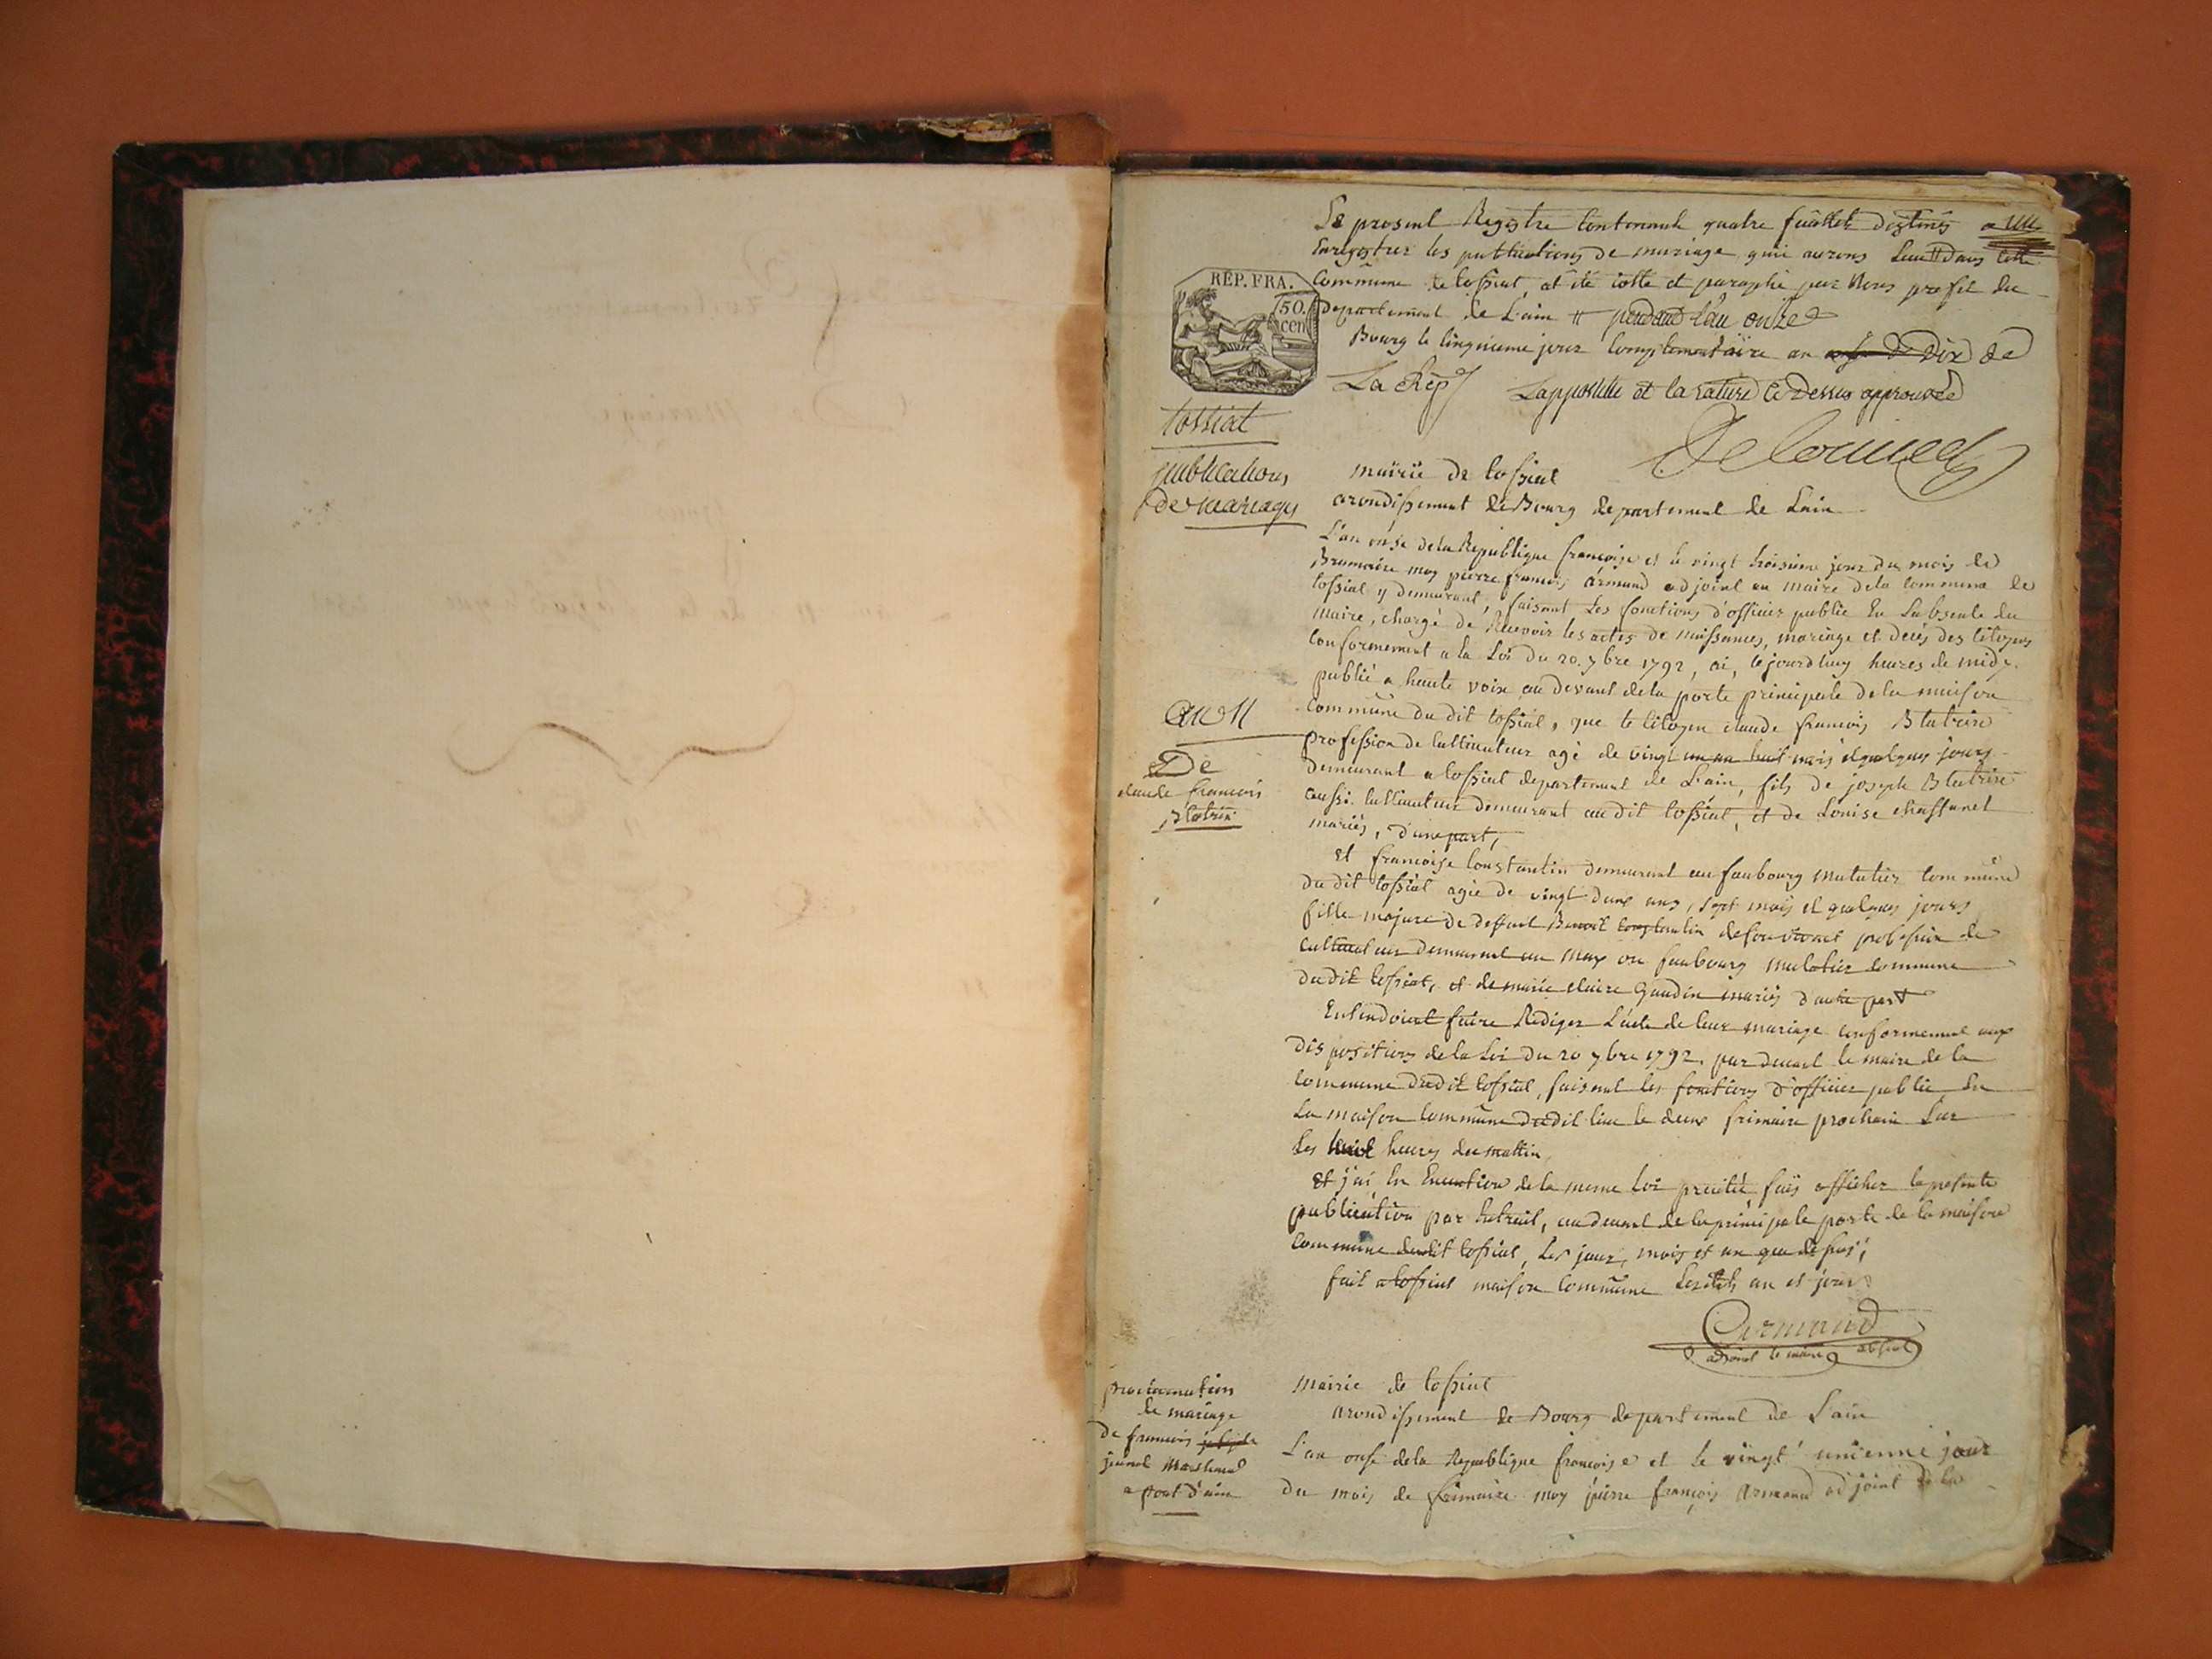 Le present Registre Contenant quatre feuillets destinés a
Enregistrer les publications de mariage qui aurons Lieu # dans cette
Commune de tossiat, at été cotté et paraphé par Nous prefet du
REP. FRA.
50.
cen
Departement de L'ain # pendant l'an onze
Bourg le cinquieme jour Complementaire an dix de
La Rep
L'appostille et la rature Ci Dessus approuvée
tossiat
publications
de mariages
mairie de tossiat
arondissement de Bourg departement de Lain
L'an onse de la Republique francoise et le vingt troisieme jour du mois de
Brumaire moy pierre francois armand adjoint au maire de la commune de
tossiat y demeurant, faisant les fonctions d'officier public en Labsente du
maire, chargé de Recevoir les actes de naissances, mariage et decés des Citoyens
conformement a la Loi du 20. 7bre 1792, ai, cejourdhuy heures de midy.
publié a haute voix au devant de la porte principale de la maison
an 11
commune du dit tossiat, que le Citoyen claude francois Blatrix
De
claude francois
Blatrix
profession de Cultivateur agé de vingt un an huit mois et quelques jours
demeurant a tossiat departement de L'ain, fils de joseph Blatrix
aussi Cultivateur demeurant au dit tossiat, et de Louise
mariés, d'une part,
Et francoise Constantin demeurant au faubourg mulatier commune
du dit tossiat agée de vingt deux ans, sept mois et quelques jours
fille majure de deffunt Benoit Constantin de son vivant profession de
Cultivateur demeurant au max ou faubourg mulatier commune
du dit tossiat, et de marie claire Gaudin mariés d'autre part
Entendoient faire Rediger L'acte de leur mariage conformement aux
dis positions de la Loi du 20 7bre 1792. par devant le maire de la
commune dudit tossiat, faisant les fonctions d'officier public en
La maison Commune dudit lieu le deux frimaire prochain Sur
les huit heures du mattin
Et j'ai En Execution de la meme Loi precitée fais afficher la presente
publication par Extrait, au devant de la principale porte de la maison
commune dudit tossiat, les jour, mois et an que dessus,
fait a tossiat maison Commune Lesdits an et jour
Armand
adjoint le maire absent
proclamation
de mariage
De francois
marchand
a pont d'ain
mairie de tossiat
arondissement de Bourg departement de Lain
L'an onse de la Republique francoise et le vingt unieme jour
Du mois de frimaire moy pierre françois armand adjoint de la